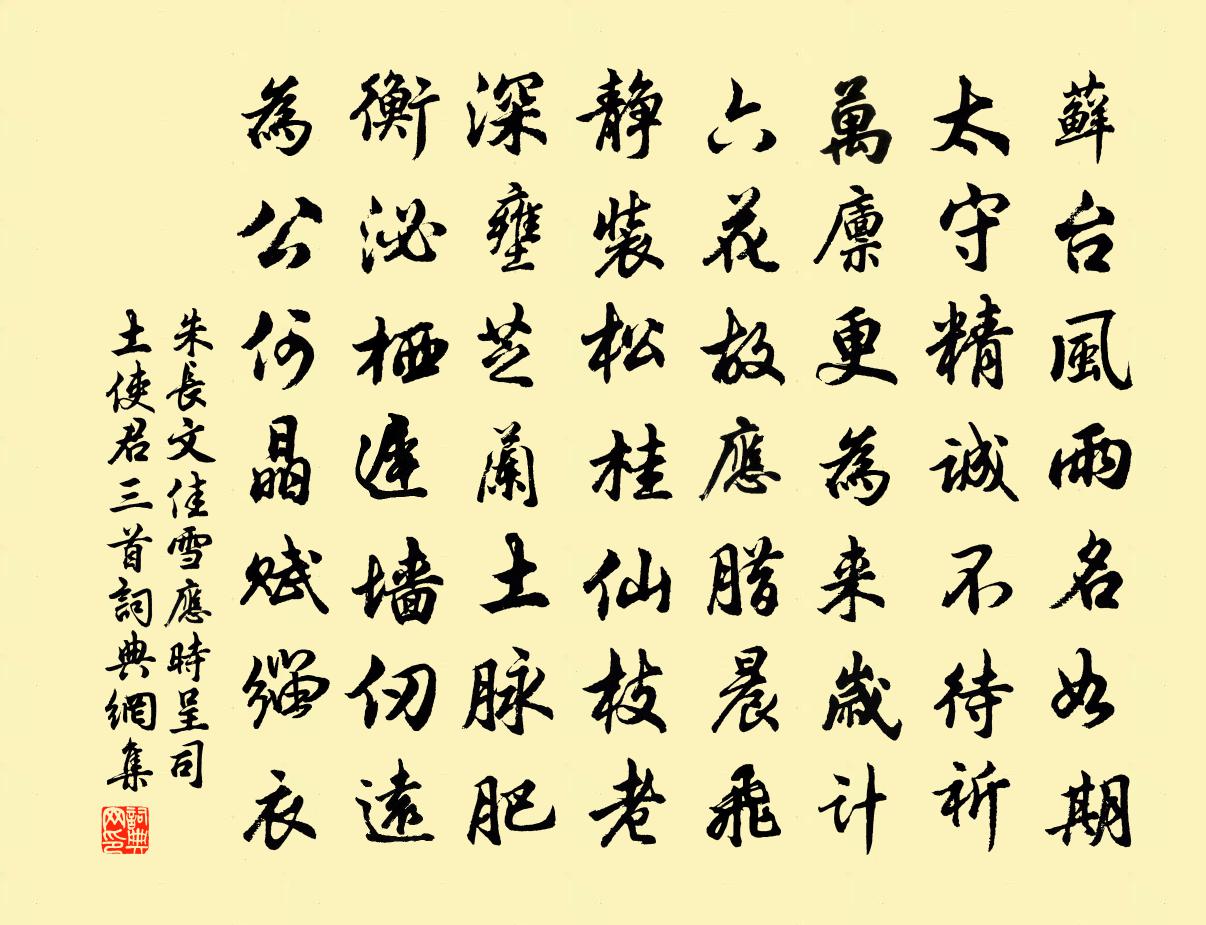 蘚台風雨名如期
太守精誠不待祈
萬廪更為来歲計
六花故應腊晨飛
静裝松桂仙枝老
深壅芝蘭土脉肥
衡泌栖遲墙仞遠
為公何晶賦緇衣
朱長文佳雪應時呈司
土使君三首詞典網集
詞典网印